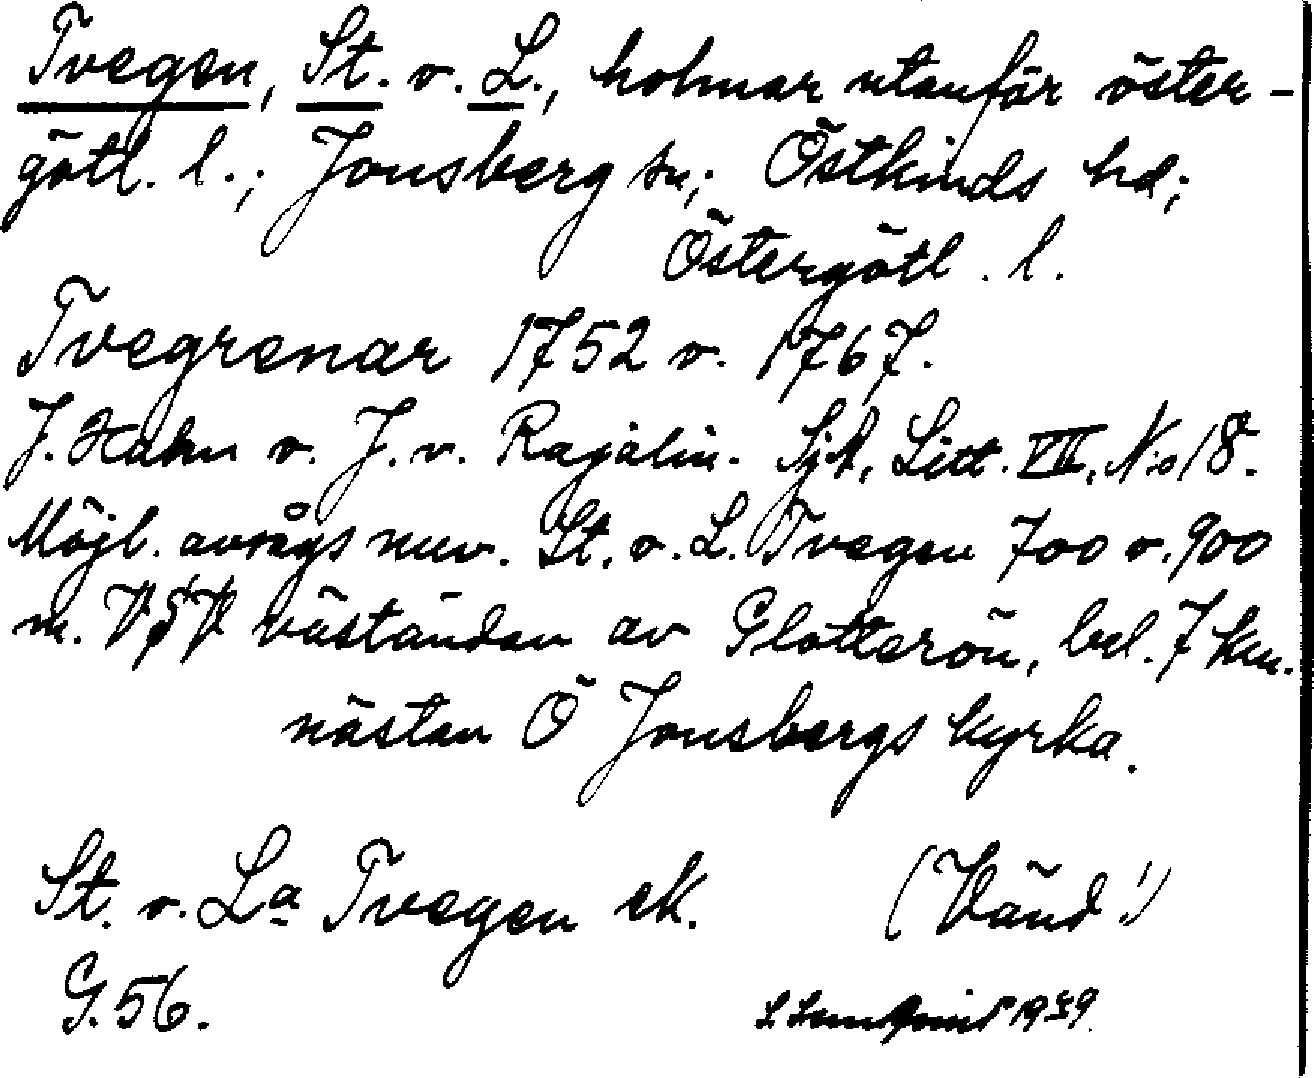 Tvegen, St. o. L., holmar utanför öster-
götl. l.; Jonsberg sn; Östkinds hd;
Östergötl. l.
Tvegrenar 1752 o. 1767.
J. Hahn o. J. v. Rajalin. Sjk, Litt. VII, N:o 18.
Möjl. avsågs nuv. St. o. L. Tvegen 700 o. 900
m. VSV väständan av Glotterön, bel. 7 km.
nästan Ö Jonsbergs kyrka.
St. o. La Tvegen ek. (Vänd!)
G. 56.
1939